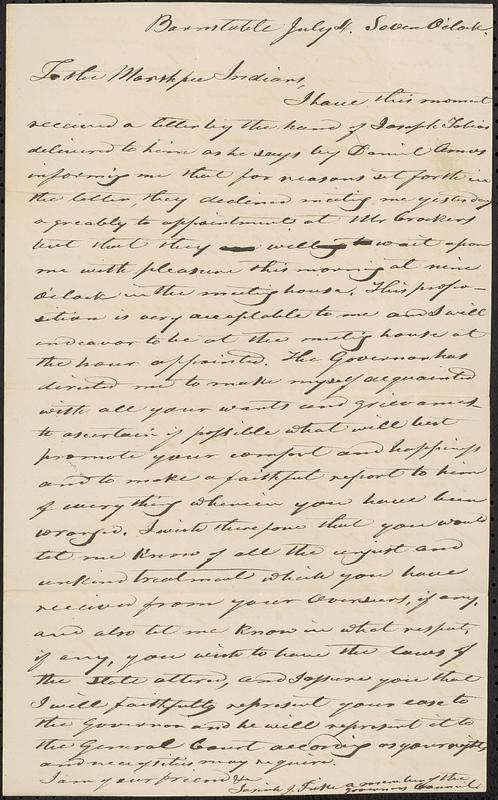 Barnstable July 4. Seven O'clock.
To the Marshpee Indians,
I have this moment
received a letter by the hand of Joseph Tobias
delivered to him as he says by Daniel Amos
informing me that for reasons set forth in
the letter, they declined meeting me yesterday
agreably to appointment at Mr Crockers
but that they will wait upon
me with pleasure this morning at nine
O'clock in the meeting house. This propo-
sition is very acceptable to me and I will
endeavor to be at the meeting house at
the hour appointed. The Governor has
directed me to make myself acquainted
with all your wants and grievances
to ascertain if possible what will best
promote your comfort and happiness
and to make a faithful report to him
of everything wherein you have been
wronged. I wish therefore that you would
let me know of all the unjust and
unkind treatment which you have
received from your Overseers, if any,
and also let me know in what respect,
if any, you wish to have the laws of
the State altered, and I assure you that
I will faithfully represent your case to
the Governor and he will represent it to
the General Court according as your rights
and necessities may require.
I am your friend &c
Josiah J. Fiske a member of the
Governors Council